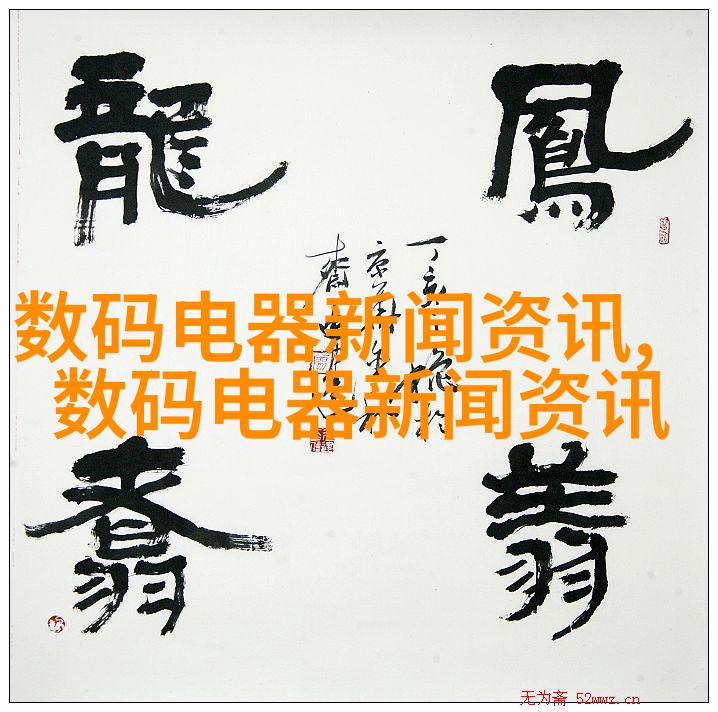 鳳翔
龍翥
丁亥
数码电器新闻资讯,
数码电器新闻资讯
无为斋 52wwz.cn